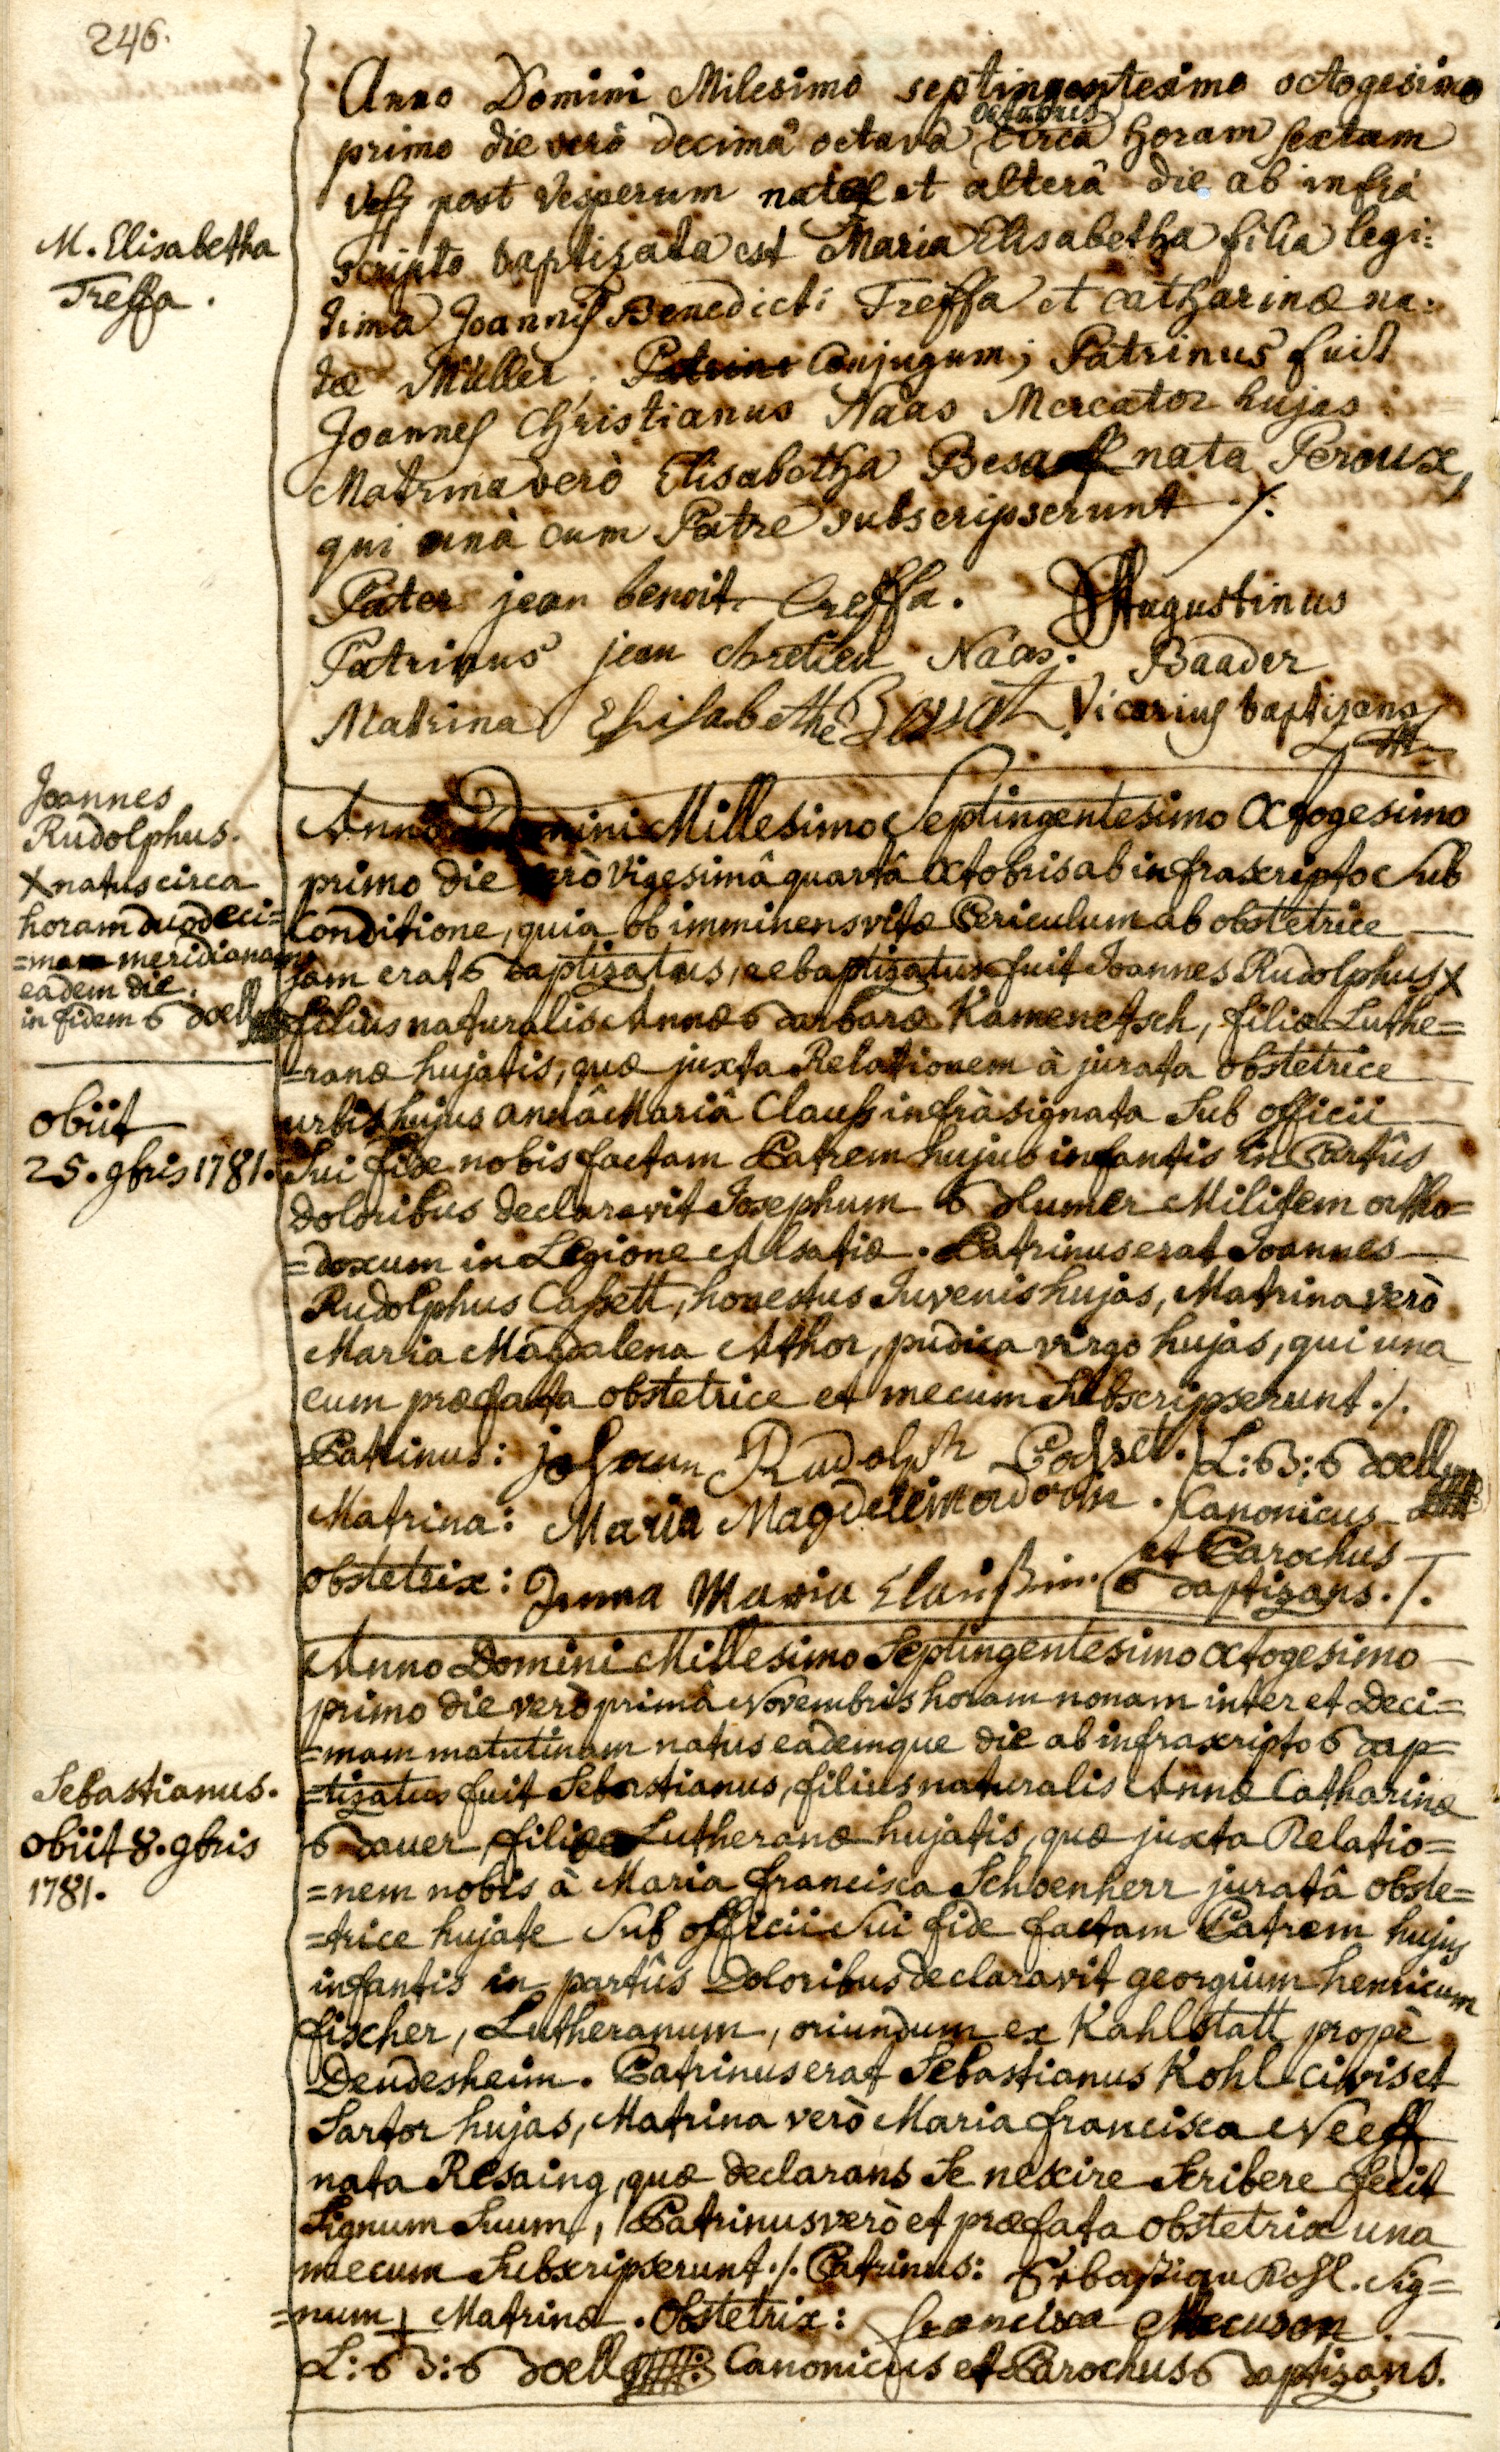 246.
Anno Domini Milesimo septingentesimo octogesimo
octobris
primo die verò decimâ octavâ circa horam sextam
post vesperum nata et alterâ die ab infra
M. Elisabetha
Treffa.
scripto baptizata est Maria Elisabetha filia legi:
tima Joannis Benedicti Treffa et catharinæ na:
tæ Müller, Conjugum; Patrinus fuit
Joannes Christianus Naas Mercator hujas
Matrina verò Elisabetha Besa nata Peroux,
qui unà cum Patre subscripserunt ./.
Pater jean benoit Treffa. Augustinus
Patrinus jean chretien Naas. Baader
Matrina Elisabethe Vicarius baptizans
Joannes
Rudolphus.
X natus circa
horam duodeci=
=mam meridianam
eadem die.
in fidem Boell
Anno Domini Millesimo Septingentesimo Octogesimo
primo die verò Vigesimâ quartâ Octobris ab infrascripto Sub
Conditione, quia ob imminens vitæ Periculum ab obstetrice
jam erat Baptizatus, rebaptizatus fuit Joannes Rudolphus X
filius naturalis Annæ Barbaræ Kamenetsch, filiæ Luthe=
=ranæ hujatis, quæ juxta Relationem à jurata obstetrice
urbis hujus annâ Mariâ Clauss infrà signata Sub officii
obiit
25. 9bris 1781.
Sui fide nobis factam Patrem hujus infantis in Partûs
doloribus declaravit Josephum Blumer Militem ortho=
=doxum in Legione Alsatiæ. Patrinus erat Joannes
Rudolphus Cassett, honestus Juvenis hujas, Matrina verò
Maria Magdalena Athor, pudica virgo hujas, qui una
cum præfata obstetrice et mecum Subscripserunt ./.
Patrinus: johann Rudolph L: B: Boell
Matrina: Maria Canonicus
et Parochus
obstetrix: Anna Maria Claussin. Baptizans ./.
Anno Domini Millesimo Septingentesimo Octogesimo
primo die verò primâ Novembris horam nonam inter et Deci=
=mam matutinam natus eademque die ab infrascripto Bap=
Sebastianus.
obiit 8. 9bris
1781.
=tizatus fuit Sebastianus, filius naturalis Annæ Catharinæ
Bauer, filiæ Lutheranæ hujatis, quæ juxta Relatio=
=nem nobis à Maria francisca Schoenherr juratâ obste=
=trice hujate Sub officii Sui fide factam Patrem hujus
infantis in partûs Doloribus declaravit georgium henricum
fischer, Lutheranum, oriundum ex Kahlstatt propè
Deudesheim. Patrinus erat Sebastianus Kohl civis et
Sartor hujas, Matrina verò Maria francisca Neeff
nata Resaing, quæ declarans Se nescire Scribere fecit
Signum Suum, Patrinus verò et præfata obstetrix una
mecum Subscripserunt ./. Patrinus: Sebastian Kohl. Sig=
=num + Matrinæ. Obstetrix: francisca
L: B: Boell Canonicus et Parochus Baptizans.